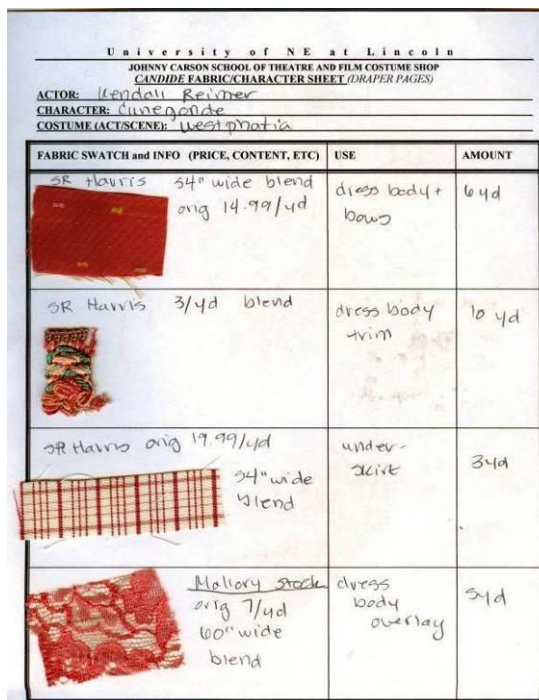 University of NE at Lincoln
JOHNNY CARSON SCHOOL OF THEATRE AND FILM COSTUME SHOP
CANDIDE FABRIC/CHARACTER SHEET (DRAPER PAGES)
ACTOR: Kendall Reimer
CHARACTER: Cunegonde
COSTUME (ACT/SCENE): Westphalia
FABRIC SWATCH and INFO (PRICE, CONTENT, ETC) USE AMOUNT
SR Harris 54" wide blend dress body + 6 yd
orig 14.99/yd bows
SR Harris 3/yd blend dress body 10 yd
trim
SR Harris orig 19.99/yd under- 3yd
54" wide skirt
blend
Mallory stock dress 5yd
orig 7/yd body
60" wide overlay
blend